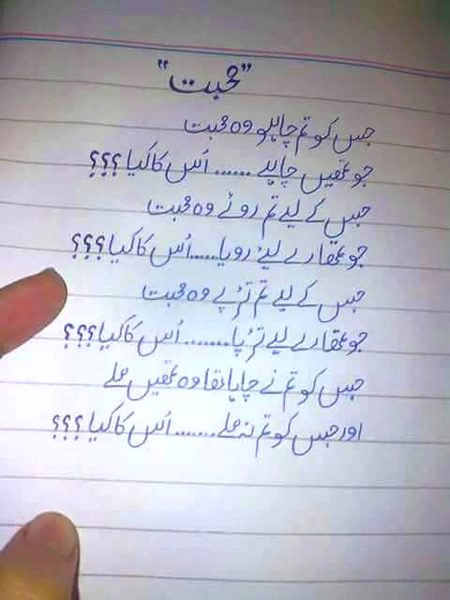 "محبت"
جس کو تم چاہو وہ محبت
جو تمھیں چاہے ...... اُس کا کیا ؟؟؟
جس کے لیے تم روئے وہ محبت
جو تمھارے لیے رویا...... اُس کا کیا ؟؟؟
جس کے لیے تم تڑپے وہ محبت
جو تمھارے لیے تڑپا........ اُس کا کیا ؟؟؟
جس کو تم نے چاہا تھا وہ تمھیں ملے
اور جس کو تم نہ ملے ....... اُس کا کیا ؟؟؟